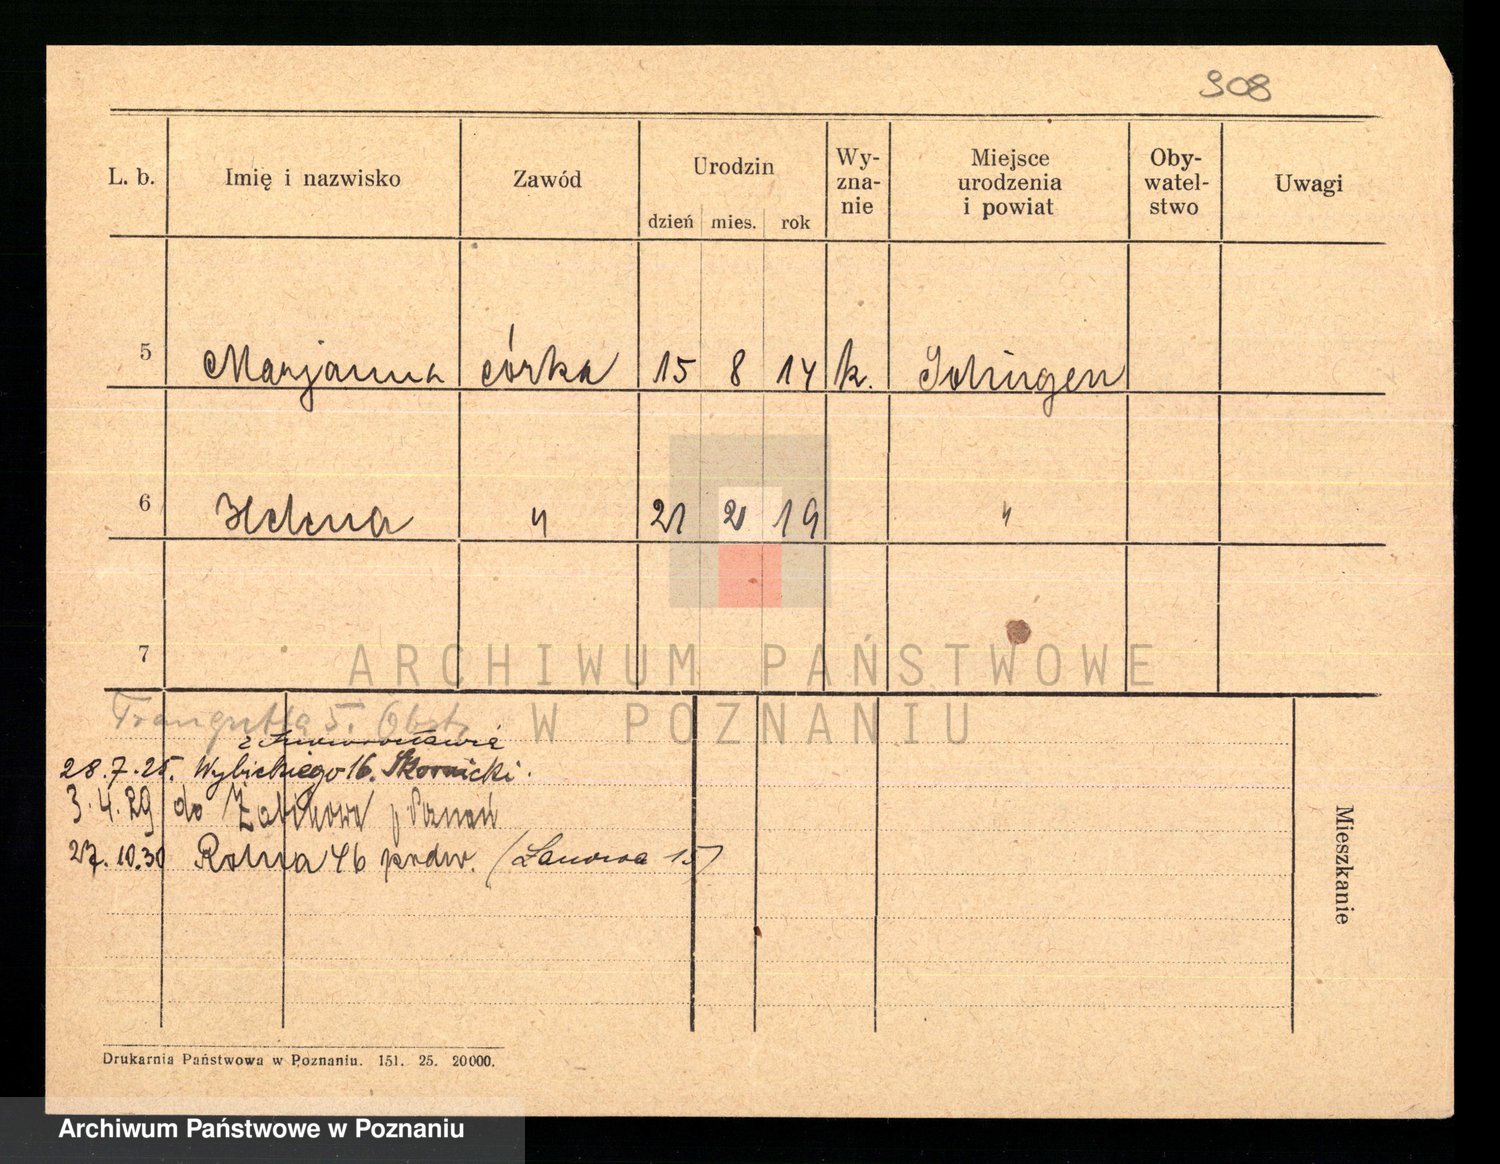 308
L. b.
Imię i nazwisko
Zawód
Urodzin
dzień mies. rok
Wy-
zna-
nie
Miejsce
urodzenia
i powiat
Oby-
watel-
stwo
Uwagi
5 Marjanna córka 15 8 14 k. Solingen
6 Helena " 21 2 19 "
7
ARCHIWUM PAŃSTWOWE
W POZNANIU
5.
z Inowrocławia
28.7.25. Wybickiego 16. Skornicki.
3.4.29 do Żabikowa p Poznań
27.10.30 Rolna 46 (Łanowa 15)
Mieszkanie
Drukarnia Państwowa w Poznaniu. 151. 25. 20000.
Archiwum Państwowe w Poznaniu